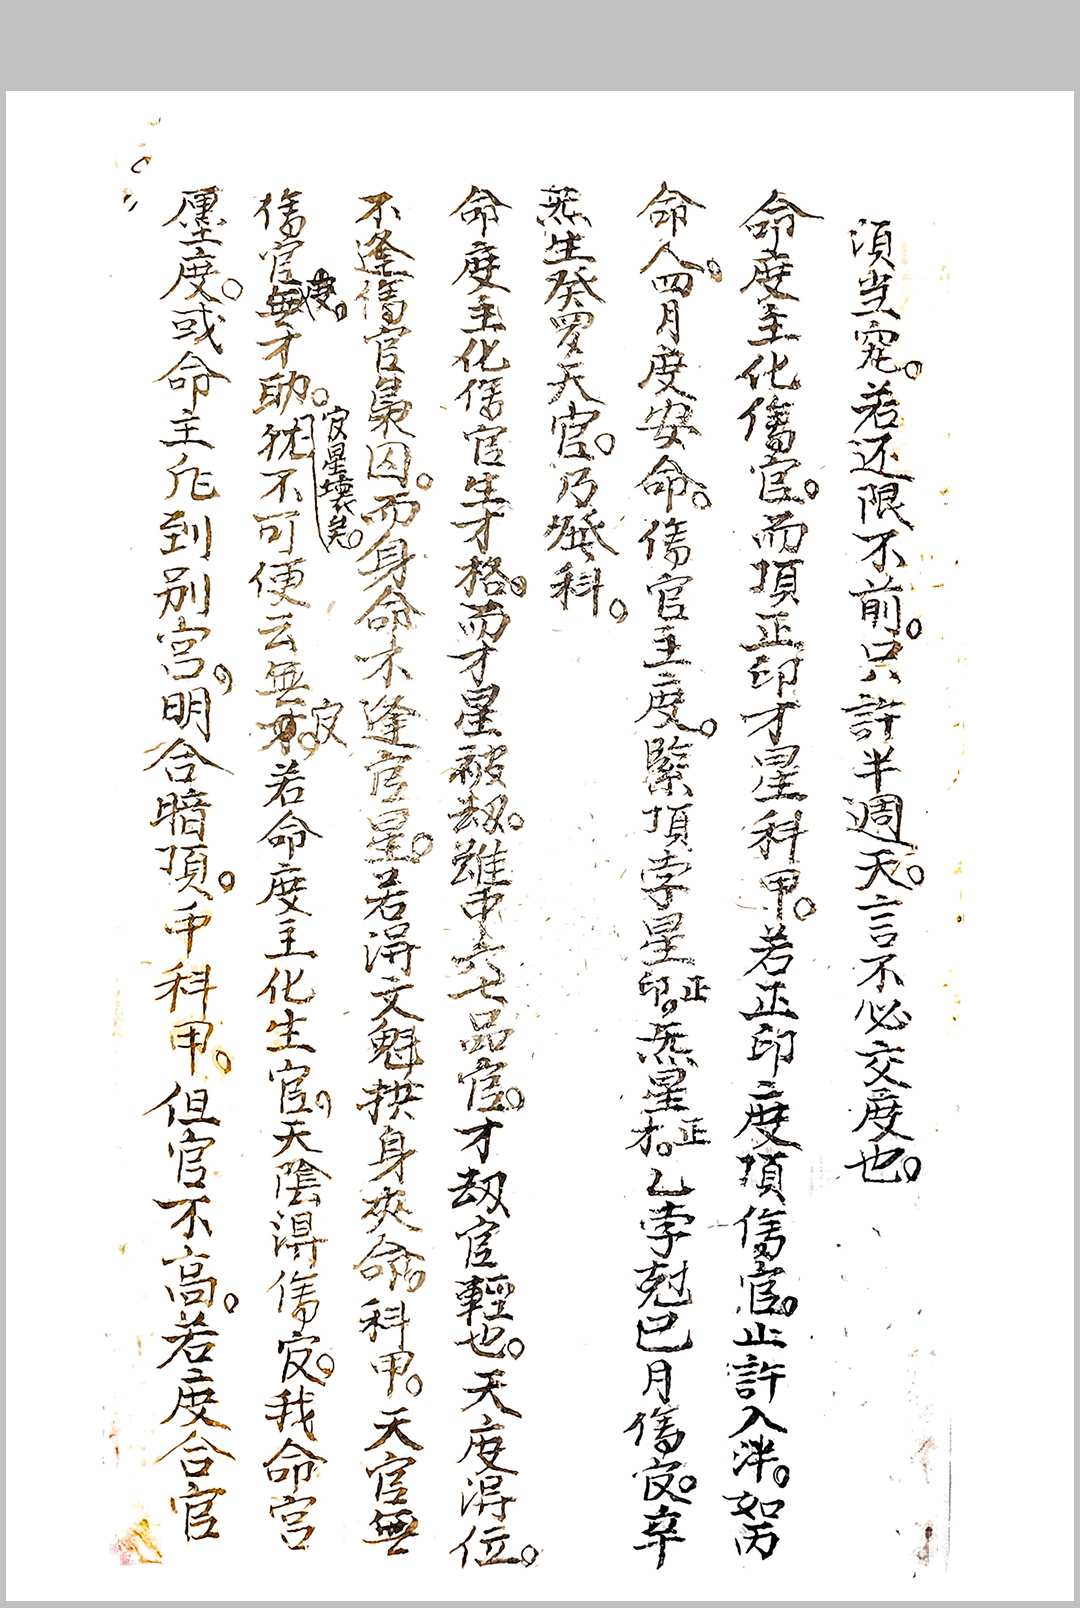 須当究。若还限不前。只許半週天。言不必交度也。
命度主化傷官。而項正印才星科甲。若正印二度項傷官。止許入泮。如丙
命人。四月度安命。傷官主二度。緊項孛星正印。炁星正才。乙孛尅巳月傷官。辛
炁生癸罗天官。乃發科。
命度主化傷官生才格。而才星被刼。雖中六七品官。才刼官輕也。天度淂位。
不逢傷官梟囚。而身命不逢官星。若淂文魁拱身夾命。科甲。天官無
傷官無度。才助。官星壞矣。犹不可便云無官。若命度主化生官。天陰淂傷官。我命宫
壥度。或命主飛到别宫。明合暗項。中科甲。但官不高。若二度合官